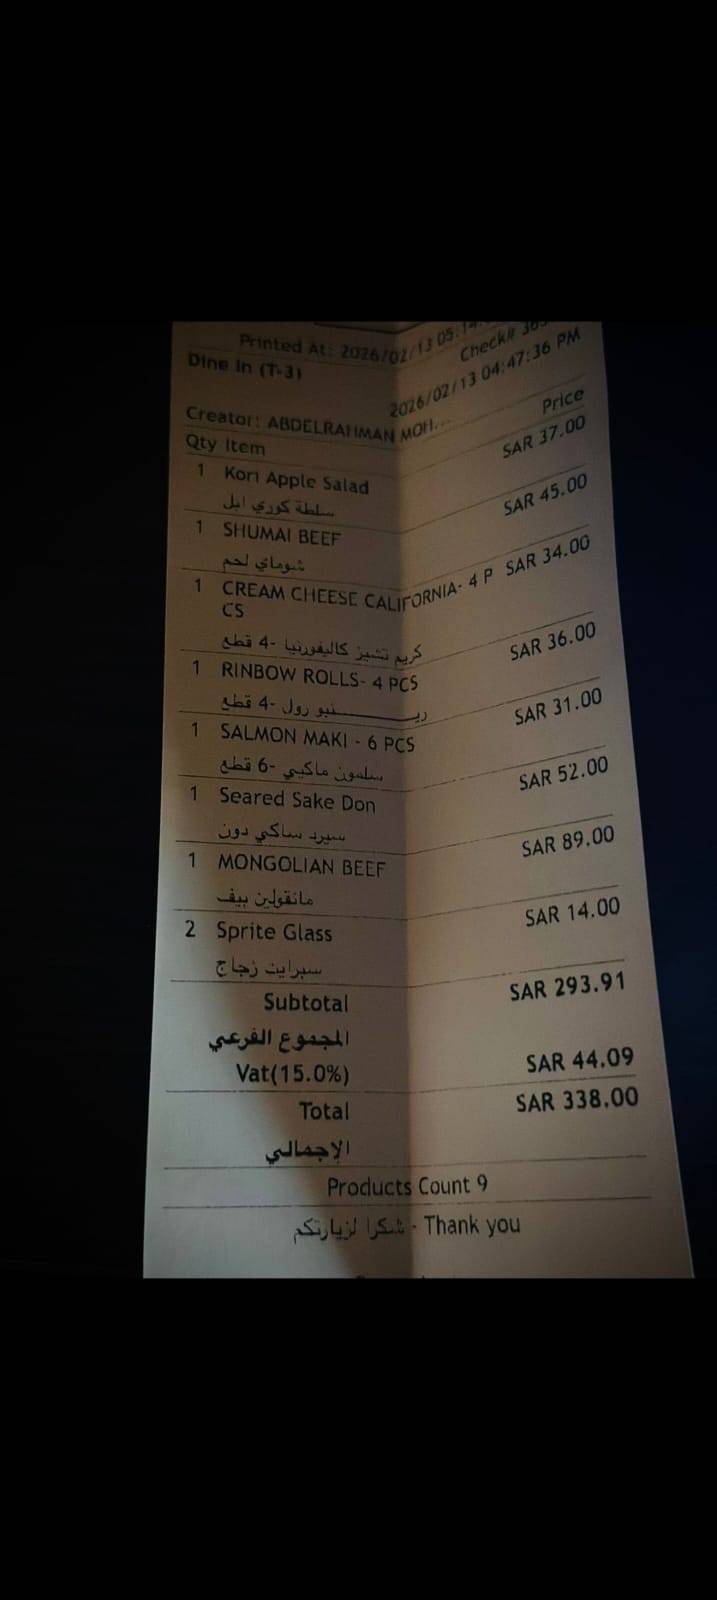 Printed At: 2026/02/13 05:14
Check#
Dine In (T-3)
2026/02/13 04:47:36 PM
Creator: ABDELRAHMAN MOH...
Qty Item Price
1 Kori Apple Salad SAR 37.00
سلطة كوري ابل
1 SHUMAI BEEF SAR 45.00
شوماي لحم
1 CREAM CHEESE CALIFORNIA- 4 P SAR 34.00
CS
كريم تشيز كاليفورنيا -4 قطع
1 RINBOW ROLLS- 4 PCS SAR 36.00
ريـــــــــنبو رول -4 قطع
1 SALMON MAKI - 6 PCS SAR 31.00
سلمون ماكيي -6 قطع
1 Seared Sake Don SAR 52.00
سيرد ساكي دون
1 MONGOLIAN BEEF SAR 89.00
مانقولين بيف
2 Sprite Glass SAR 14.00
سبرايت زجاج
Subtotal SAR 293.91
المجموع الفرعي
Vat(15.0%) SAR 44.09
Total SAR 338.00
الإجمالي
Products Count 9
شكرا لزيارتكم - Thank you